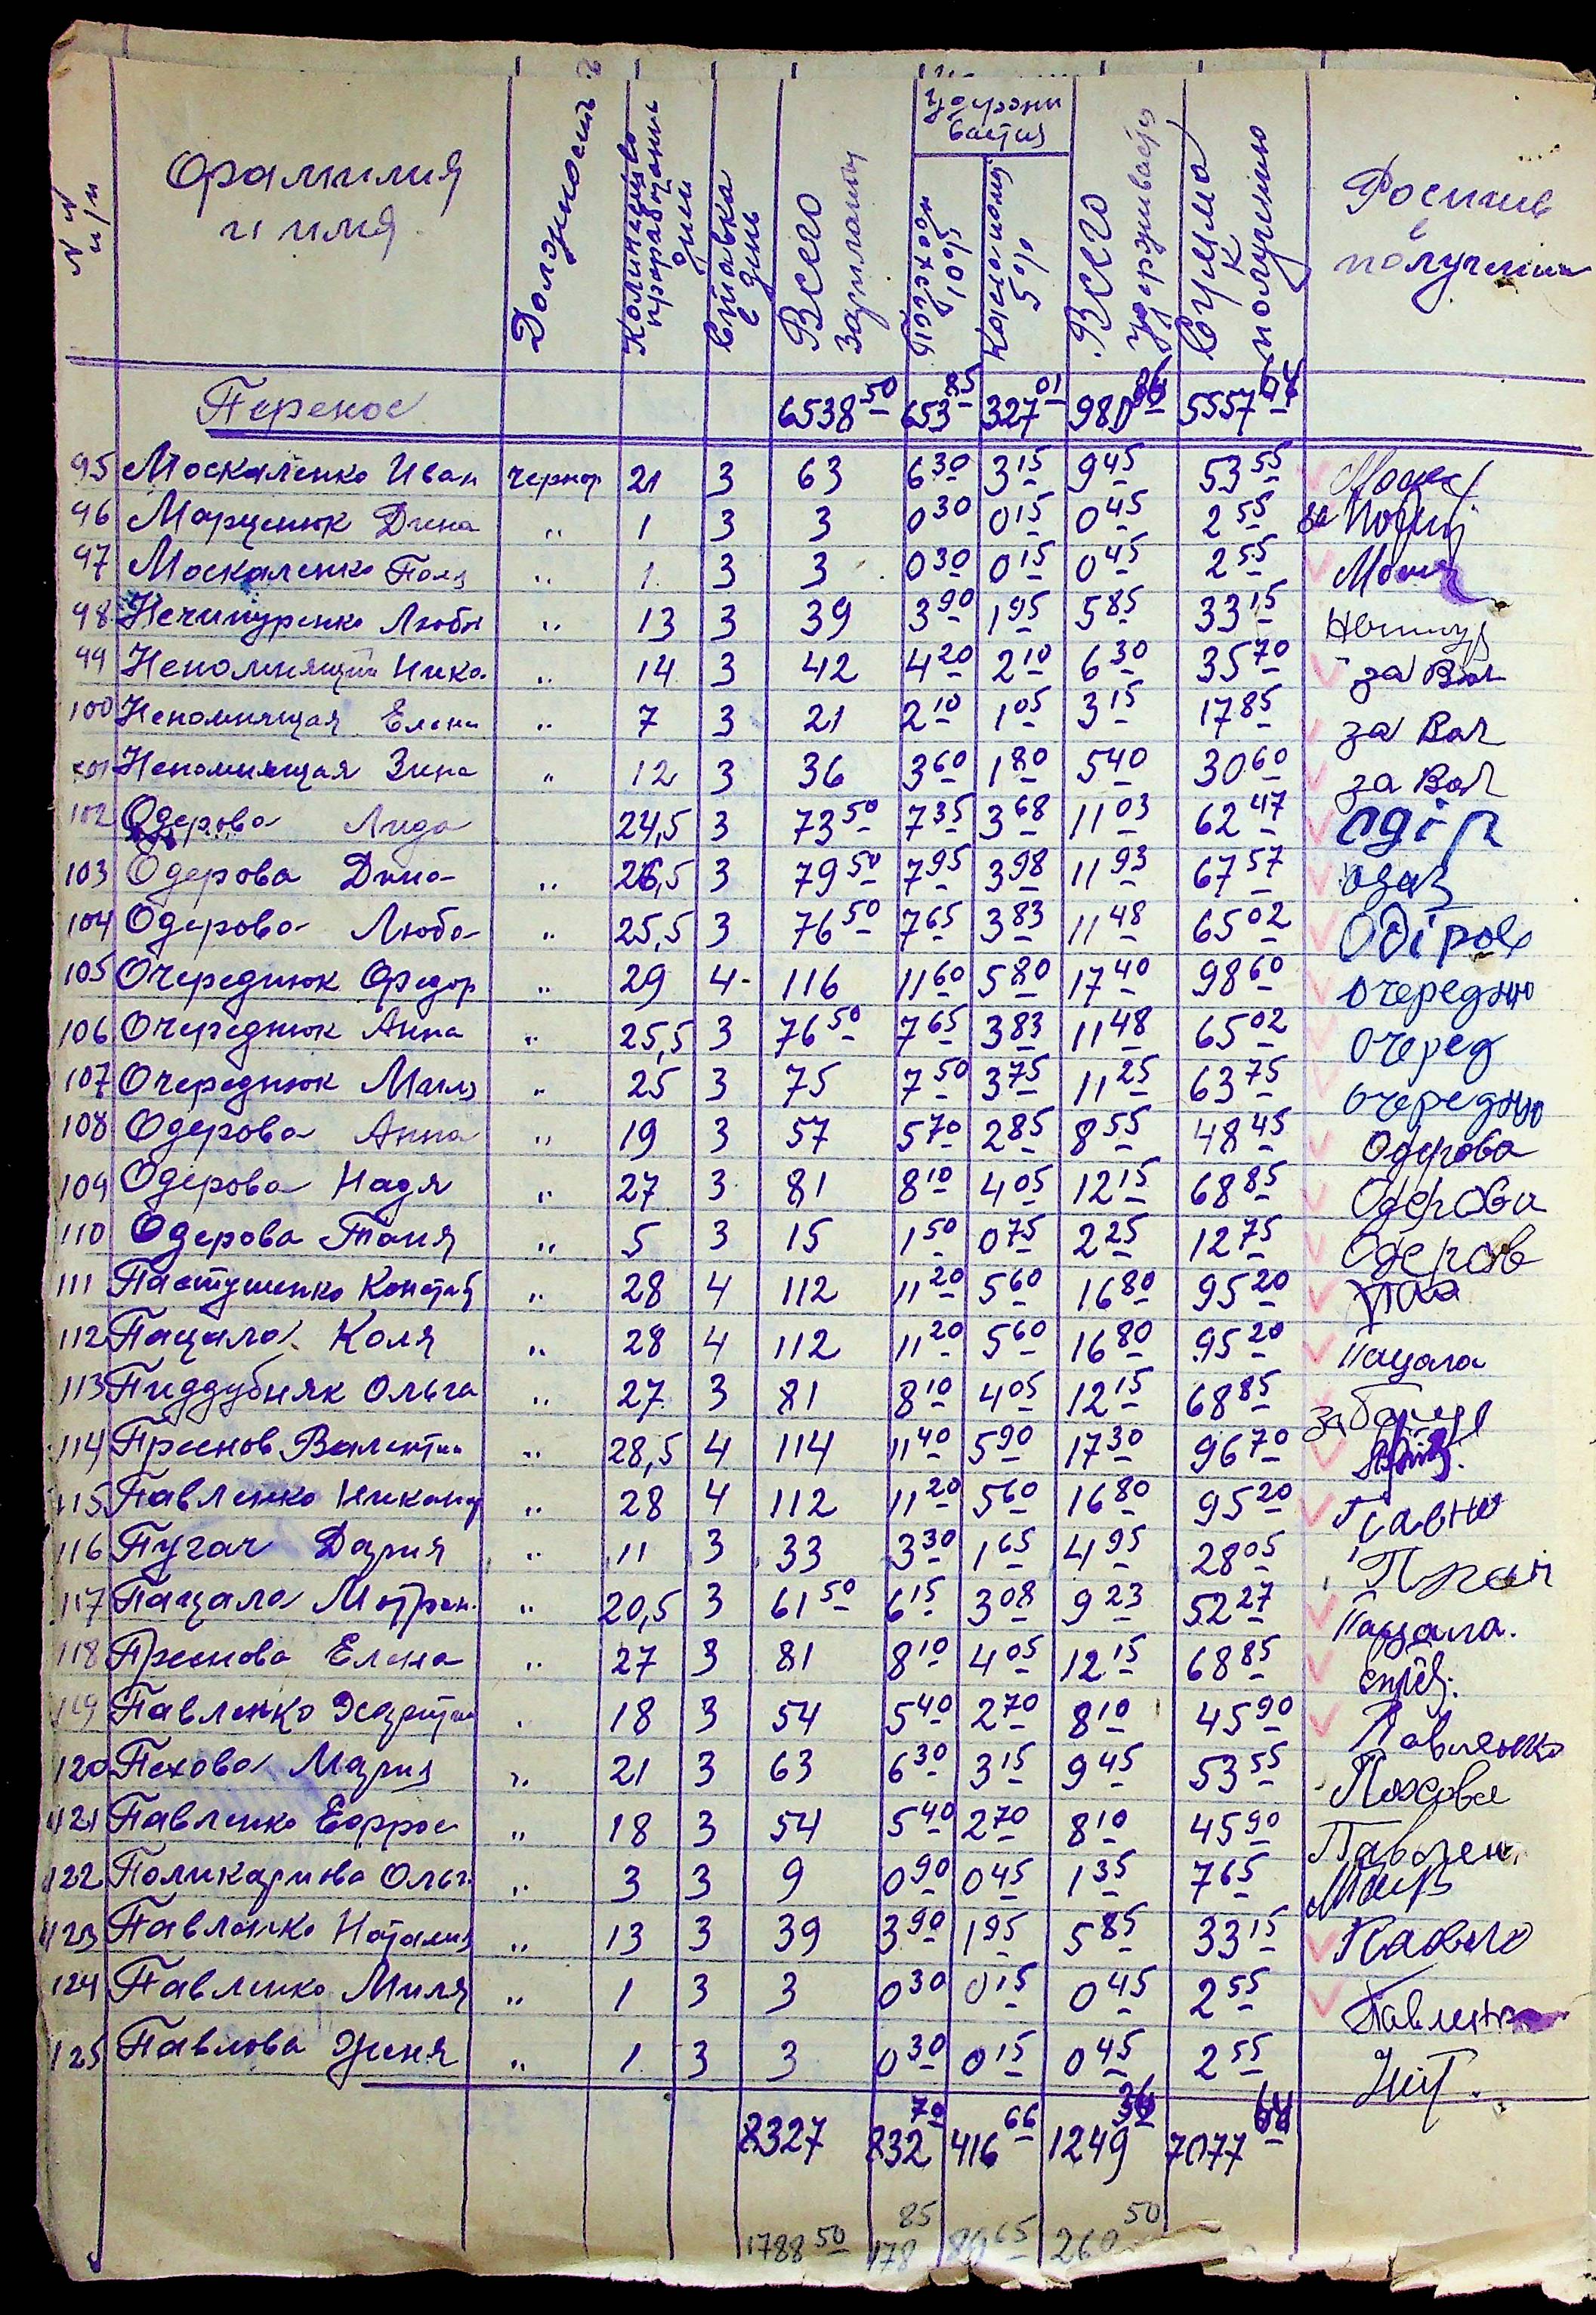 №№ п/п Фамилия и имя Должность Количество проработаных дней Ставка в день Всего зарплаты Удержи вается Подоход. 10% 5% Всего удерживается Сумма к получению Роспись в получении
Перенос 6538 50 653 85 327 01 980 86 5557 64
95 Москаленко Иван чернор 21 3 63 6 30 3 15 9 45 53 55
96 Марцинюк Дина " 1 3 3 0 30 0 15 0 45 2 55 за
97 Москаленко Поля " 1 3 3 0 30 0 15 0 45 2 55
98 Нечипуренко Люба " 13 3 39 3 90 1 95 5 85 33 15
99 Непомнящий Нико. " 14 3 42 4 20 2 10 6 30 35 70 за Воч
100 Непомнящая Елена " 7 3 21 2 10 1 05 3 15 17 85 за Воч
101 Непомнящая Зина " 12 3 36 3 60 1 80 5 40 30 60 за Воч
102 Одерова Лида 24,5 3 73 50 7 35 3 68 11 03 62 47
103 Одерова Дина " 26,5 3 79 50 7 95 3 98 11 93 67 57
104 Одерова Люба " 25,5 3 76 50 7 65 3 83 11 48 65 02 Одіров
105 Очереднюк Федор " 29 4 116 11 60 5 80 17 40 98 60 Очередню
106 Очереднюк Анна " 25,5 3 76 50 7 65 3 83 11 48 65 02 Очеред
107 Очереднюк Миля " 25 3 75 7 50 3 75 11 25 63 75 Очередню
108 Одерова Анна " 19 3 57 5 70 2 85 8 55 48 45 Одерова
109 Одерова Надя " 27 3 81 8 10 4 05 12 15 68 85 Одерова
110 Одерова Таня " 5 3 15 1 50 0 75 2 25 12 75 Одеров
111 Пастушенко Конст. " 28 4 112 11 20 5 60 16 80 95 20
112 Пацала Коля " 28 4 112 11 20 5 60 16 80 95 20 Пацала
113 Пиддубняк Ольга " 27 3 81 8 10 4 05 12 15 68 85 за
114 Преснов Валентин " 28,5 4 114 11 40 5 90 17 30 96 70
115 Павленко Никанд " 28 4 112 11 20 5 60 16 80 95 20
116 Пугач Дария " 11 3 33 3 30 1 65 4 95 28 05
117 Пацала Мотрен. " 20,5 3 61 50 6 15 3 08 9 23 52 27 Пацала.
118 Преснова Елена " 27 3 81 8 10 4 05 12 15 68 85
119 Павленко Харитин " 18 3 54 5 40 2 70 8 10 45 90 Павленко
120 Пехова Мария " 21 3 63 6 30 3 15 9 45 53 55 Пехова
121 Павленко Ефрос " 18 3 54 5 40 2 70 8 10 45 90 Павлен
122 Поликарпова Ольг. " 3 3 9 0 90 0 45 1 35 7 65
123 Павленко Наталия " 13 3 39 3 90 1 95 5 85 33 15
124 Павленко Миля " 1 3 3 0 30 0 15 0 45 2 55
125 Павлова Женя " 1 3 3 0 30 0 15 0 45 2 55
8327 832 70 416 66 1249 36 7077 64
1788 50 178 85 89 65 268 50